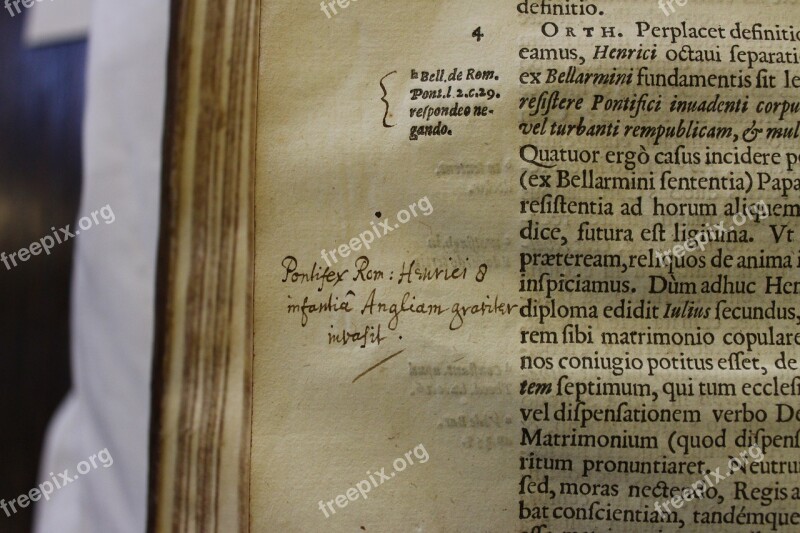 4
h Bell. de Rom.
Pont. l. 2. c. 29.
reſpondeo ne-
gando.
Pontifex Rom: Henrici 8
infantiâ Angliam graviter
invasit.
definitio.
ORTH. Perplacet definitio
eamus, Henrici octaui ſeparati
ex Bellarmini fundamentis ſit le
reſiſtere Pontifici inuadenti corpu
vel turbanti rempublicam, & mul
Quatuor ergò caſus incidere p
(ex Bellarmini ſententia) Papa
reſiſtentia ad horum aliquem
dice, futura eſt ligitima. Vt
præteream, reliquos de anima i
inſpiciamus. Dùm adhuc Hen
diploma edidit Iulius ſecundus,
rem ſibi matrimonio copulare
nos coniugio potitus eſſet, de
tem ſeptimum, qui tum eccleſi
vel diſpenſationem verbo De
Matrimonium (quod diſpenſ
ritum pronuntiaret. Neutrum
ſed, moras nectendo, Regis a
bat conſcientiam, tandémque
freepix.org
freepix.org
freepix.org
freepix.org
freepix.org
freepix.org
freepix.org
freepix.org
freepix.org